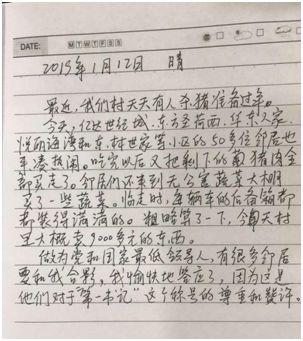 DATE: M T W T F S S
2015年1月12日 晴
最近,我们村天天有人杀猪准备过年。
今天,亿达世纪城、东方圣荷西、华东人家、
悦丽海湾和东村世家等小区的50多位邻居也
来凑热闹。吃完以后又把剩下的 猪肉全
部买走了。邻居们还来到无公害蔬菜大棚
买了一些蔬菜。临走时,每辆车的后备箱都
都装得满满的。粗略算了一下,今天村
里大概卖9000多元的东西。
做为党和国家最低领导人,有很多邻居
要和我合影,我愉快地答应了,因为这是
他们对于“第一书记”这个称号的尊重和赞许。